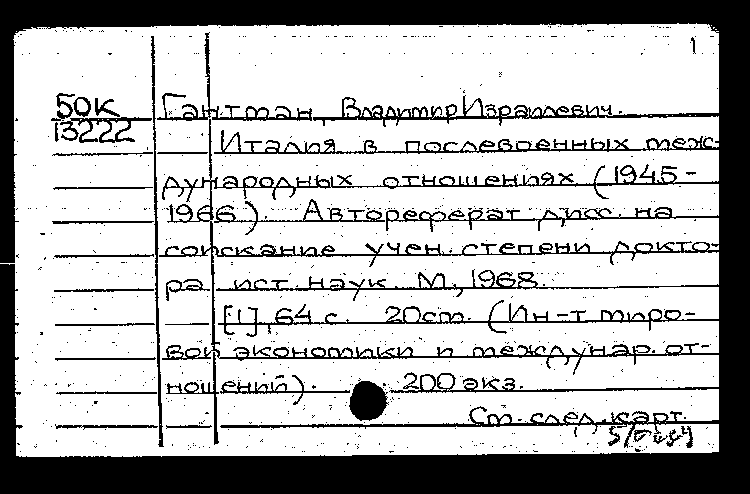 1
50К
13222
Гантман, Владимир Израилевич.
Италия в послевоенных меж-
дународных отношениях (1945-
1966). Автореферат дисс. на
соискание учен. степени докто-
ра ист. наук. М., 1968.
[1], 64 с. 20 см. (Ин-т миро-
вой экономики и междунар. от-
ношений). 200 экз.
См. след. карт.